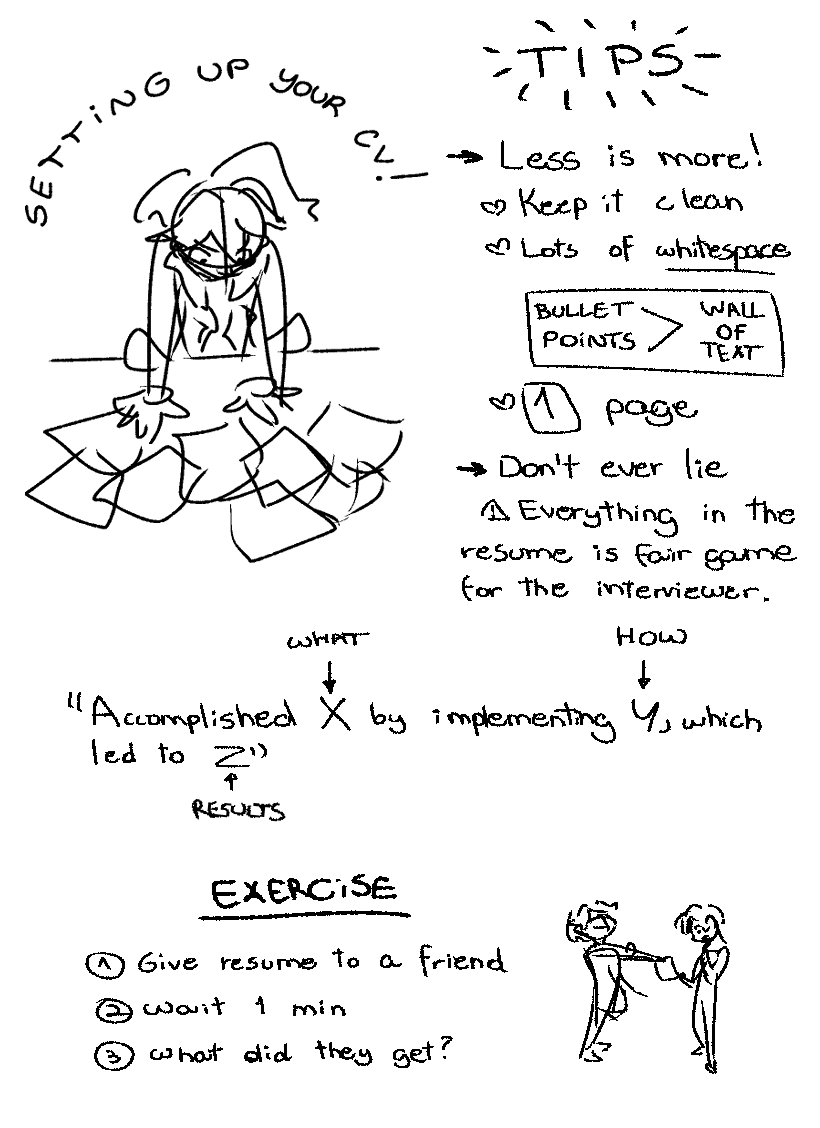 SETTiNG UP YOUR CV!
TIPS
→ Less is more!
♡ Keep it clean
♡ Lots of whitespace
BULLET POiNTS > WALL OF TEXT
♡ 1 page
→ Don't ever lie
⚠ Everything in the
resume is fair game
for the interviewer.
WHAT
HOW
"Accomplished X by implementing Y, which
led to Z"
RESULTS
EXERCiSE
① Give resume to a friend
② wait 1 min
③ what did they get?